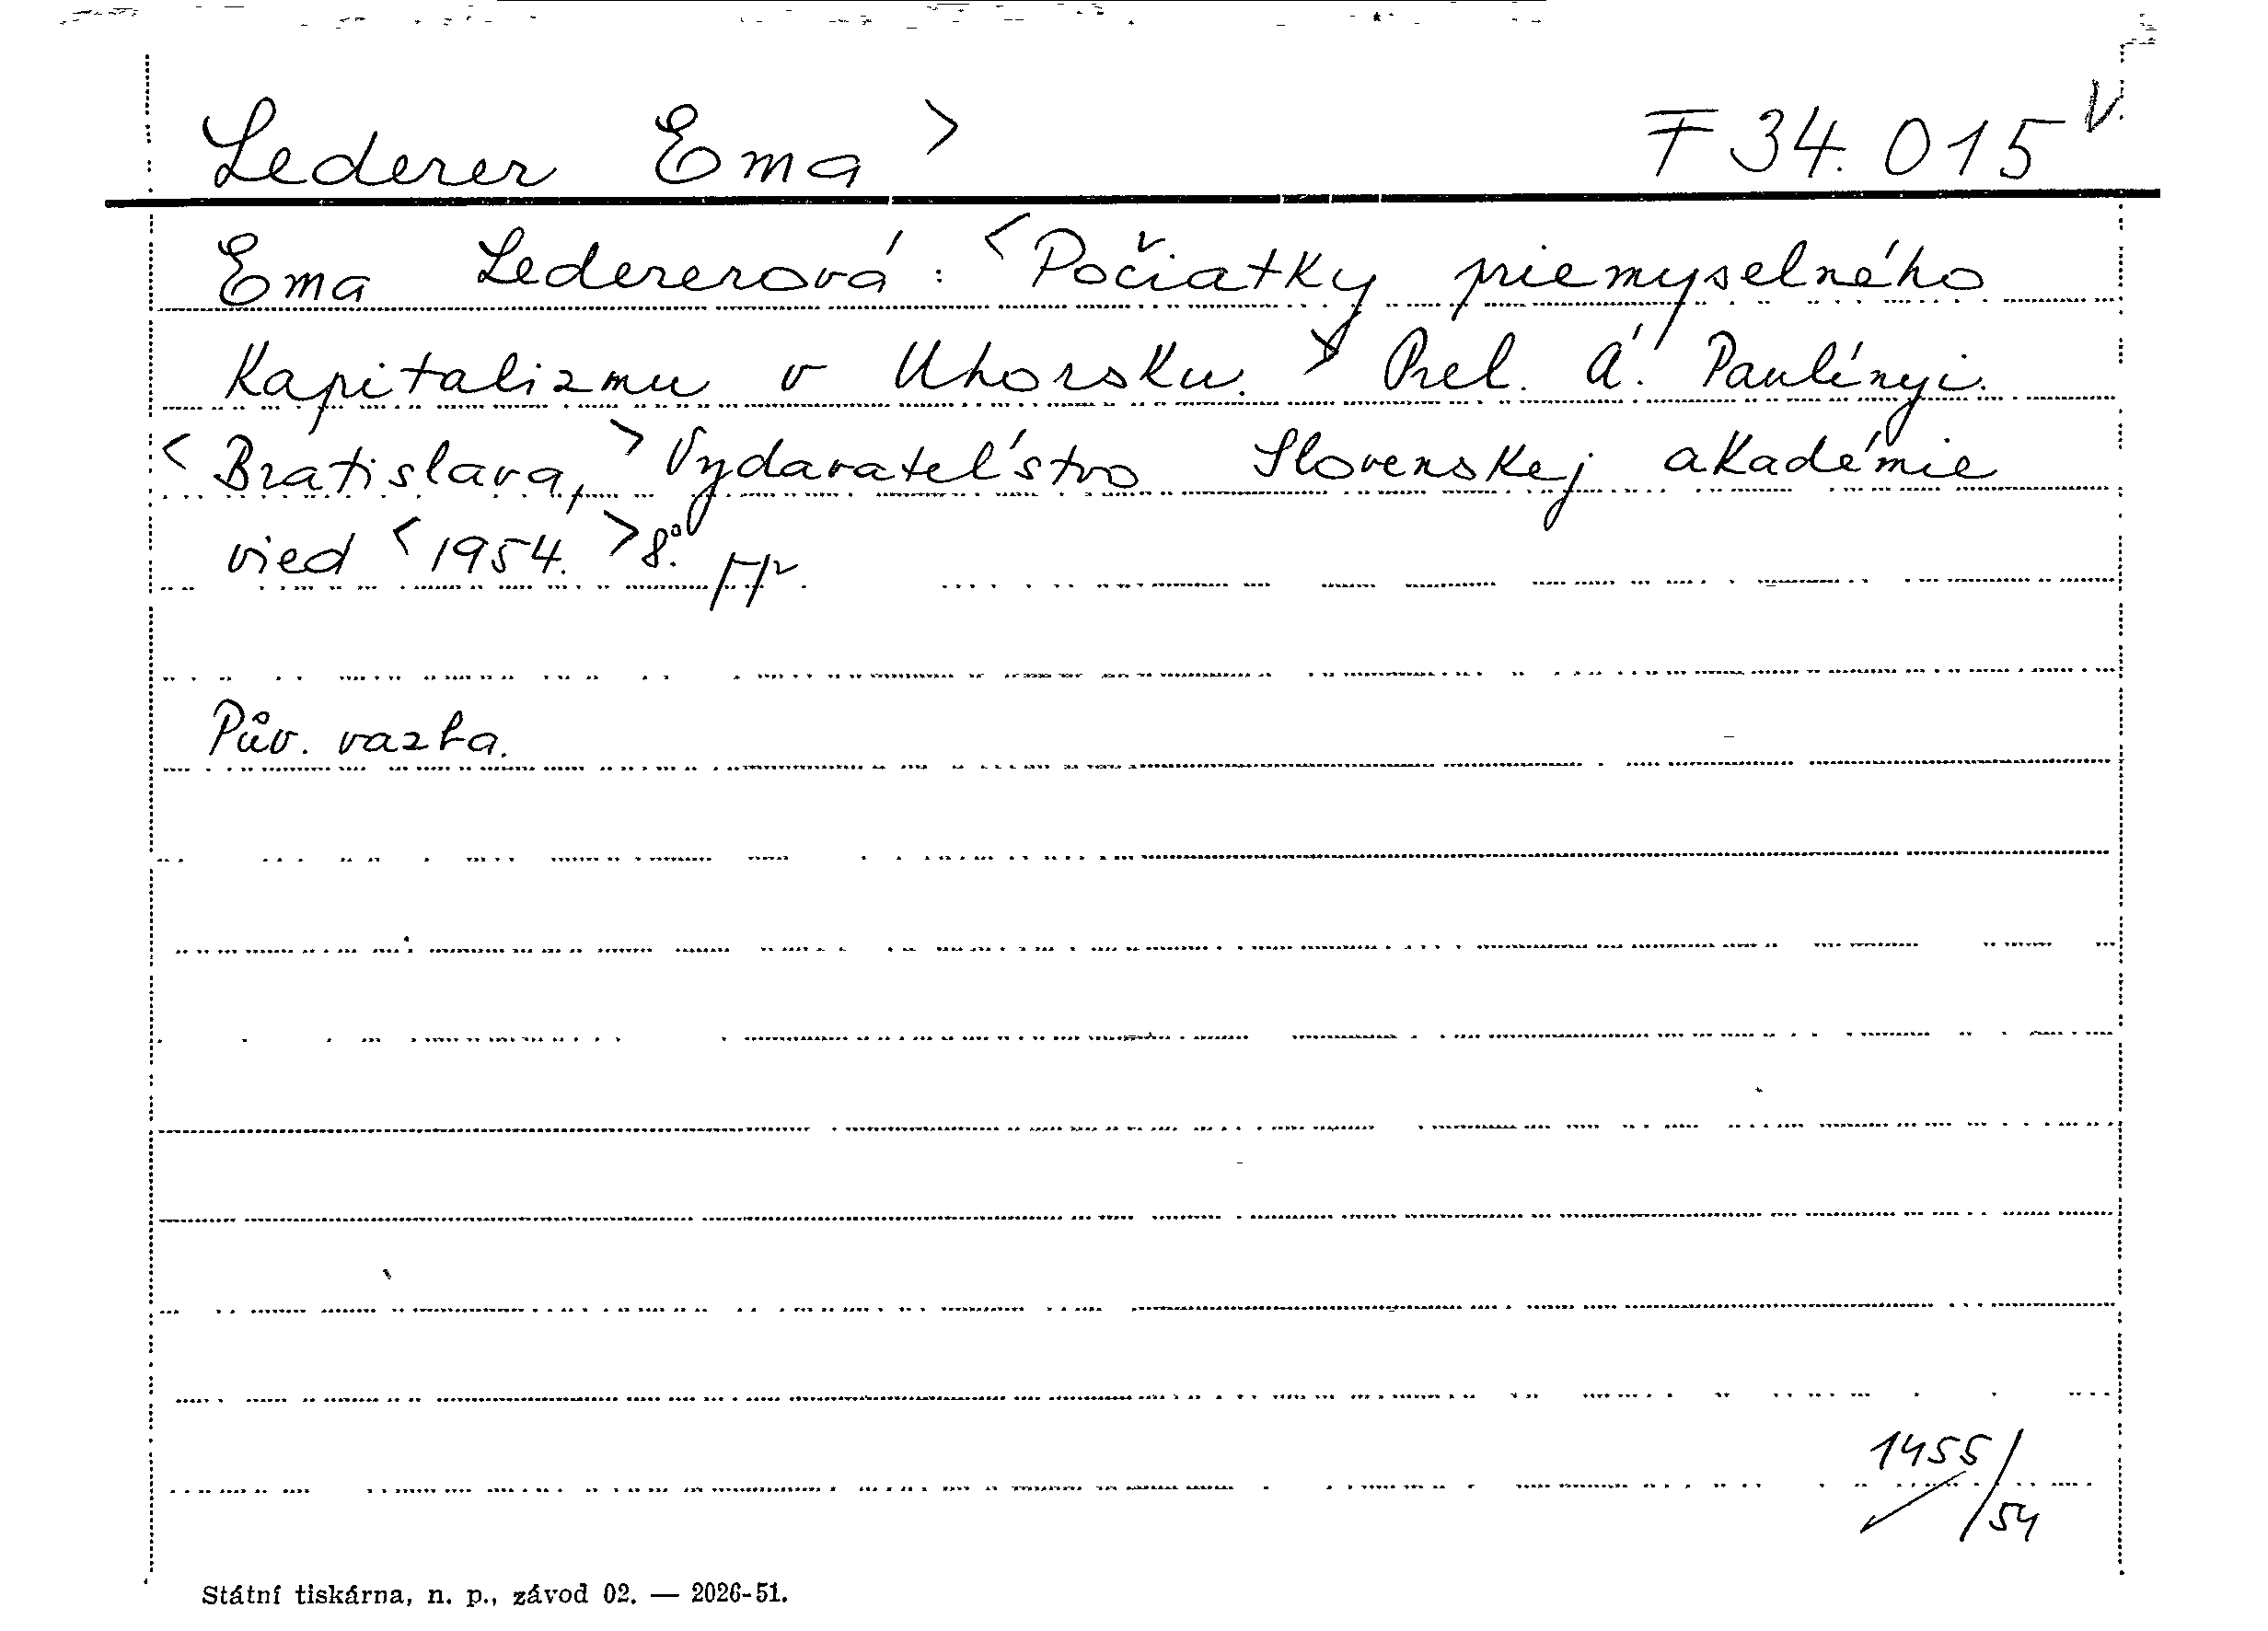 Lederer Ema > F 34.015 V.
Ema Ledererová: <Počiatky priemyselného
Kapitalizmu v Uhorsku.> Prel. Á. Paulínyi.
<Bratislava,> Vydavateľstvo Slovenskej akadémie
vied <1954.> 8°.
Pův. vazba.
1455/54
Státní tiskárna, n. p., závod 02. — 2026-51.